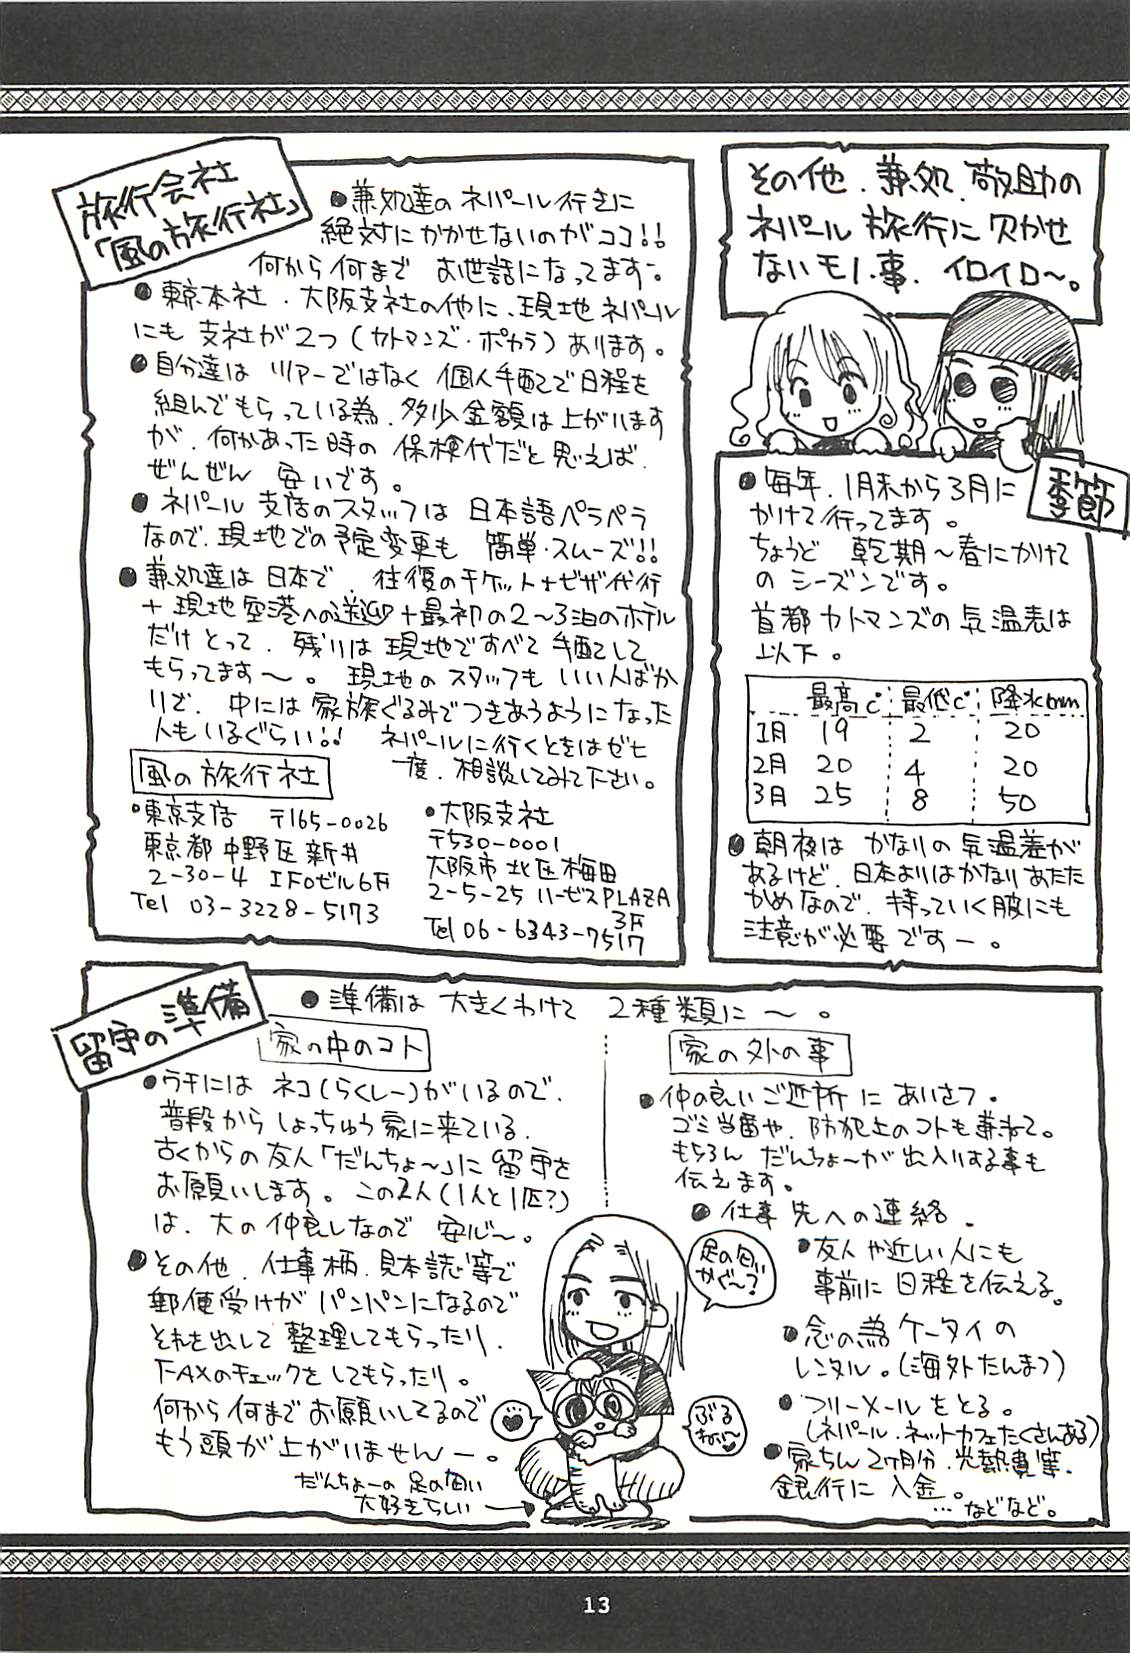 その他、兼処、敬助の
ネパール旅行に欠かせ
ないモノ、事、イロイロ～。
旅行会社
「風の旅行社」
●兼処達のネパール行きに
絶対にかかせないのがココ!!
何から何まで お世話になってます。
●東京本社・大阪支社の他に、現地ネパール
にも支社が2つ(カトマンズ・ポカラ)あります。
●自分達は ツアーではなく 個人手配で日程を
組んでもらっている為、多少金額は上がります
が、何かあった時の 保検代だと思えば、
ぜんぜん 安いです。
●ネパール支店のスタッフは 日本語ペラペラ
なので、現地での予定変更も 簡単・スムーズ!!
●兼処達は日本で、往復のチケット+ビザ代行
+現地空港への送迎+最初の2～3泊のホテル
だけとって、残りは現地ですべて手配して
もらってます～。 現地のスタッフも いい人ばか
りで、中には家族ぐるみでつきあうようになった
人もいるぐらい!! ネパールに行くときはぜヒ
一度、相談してみて下さい。
風の旅行社
・東京支店 〒165-0026
東京都中野区新井
2-30-4 IFOビル6F
Tel 03-3228-5173
・大阪支社
〒530-0001
大阪市北区梅田
2-5-25 ハービスPLAZA
3F
Tel 06-6343-7517
季節
●毎年、1月末から3月に
かけて行ってます。
ちょうど 乾期～春にかけて
のシーズンです。
首都カトマンズの気温表は
以下。
最高℃ 最低℃ 降水mm
1月 19 2 20
2月 20 4 20
3月 25 8 50
●朝夜は かなりの気温差が
あるけど、日本よりはかなりあたた
かめなので、持っていく服にも
注意が必要ですー。
留守の準備
●準備は 大きくわけて 2種類に～。
家の中のコト
●ウチには ネコ(らくしー)がいるので、
普段からしょっちゅう家に来ている、
古くからの友人「だんちょ～」に留守を
お願いします。この2人(1人と1匹?)
は、大の仲良しなので 安心～。
●その他、仕事柄、見本誌等で
郵便受けがパンパンになるので
それを出して整理してもらったり、
FAXのチェックをしてもらったり。
何から何までお願いしてるので
もう頭が上がりませんー。
だんちょーの足の匂い
大好きらしい
足の匂い
かぐ～?
ぶる
ねぃ～
家の外の事
●仲の良いご近所にあいさつ。
ゴミ当番や、防犯上のコトも兼ねて。
もちろん だんちょ～が出入りする事も
伝えます。
●仕事先への連絡。
●友人や近しい人にも
事前に日程を伝える。
●念の為ケータイの
レンタル。(海外たんまつ)
●フリーメールをとる。
(ネパール、ネットカフェたくさんある)
●家ちん2ヶ月分、光熱費等、
銀行に入金。
…などなど。
13